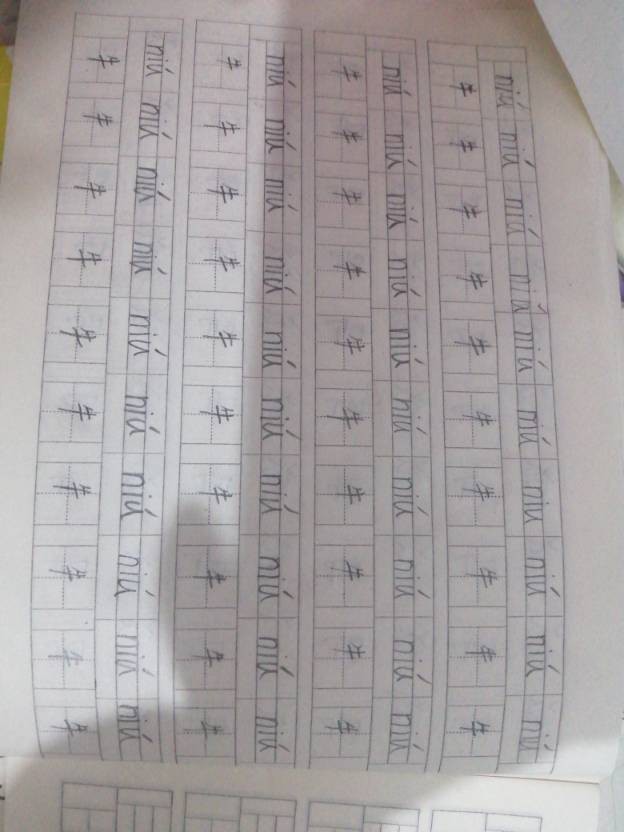 niú niú niú niú niú niú niú niú niú niú
牛 牛 牛 牛 牛 牛 牛 牛 牛 牛
niú niú niú niú niú niú niú niú niú niú
牛 牛 牛 牛 牛 牛 牛 牛 牛 牛
niú niú niú niú niú niú niú niú niú niú
牛 牛 牛 牛 牛 牛 牛 牛 牛 牛
niú niú niú niú niú niú niú niú niú niú
牛 牛 牛 牛 牛 牛 牛 牛 牛 牛